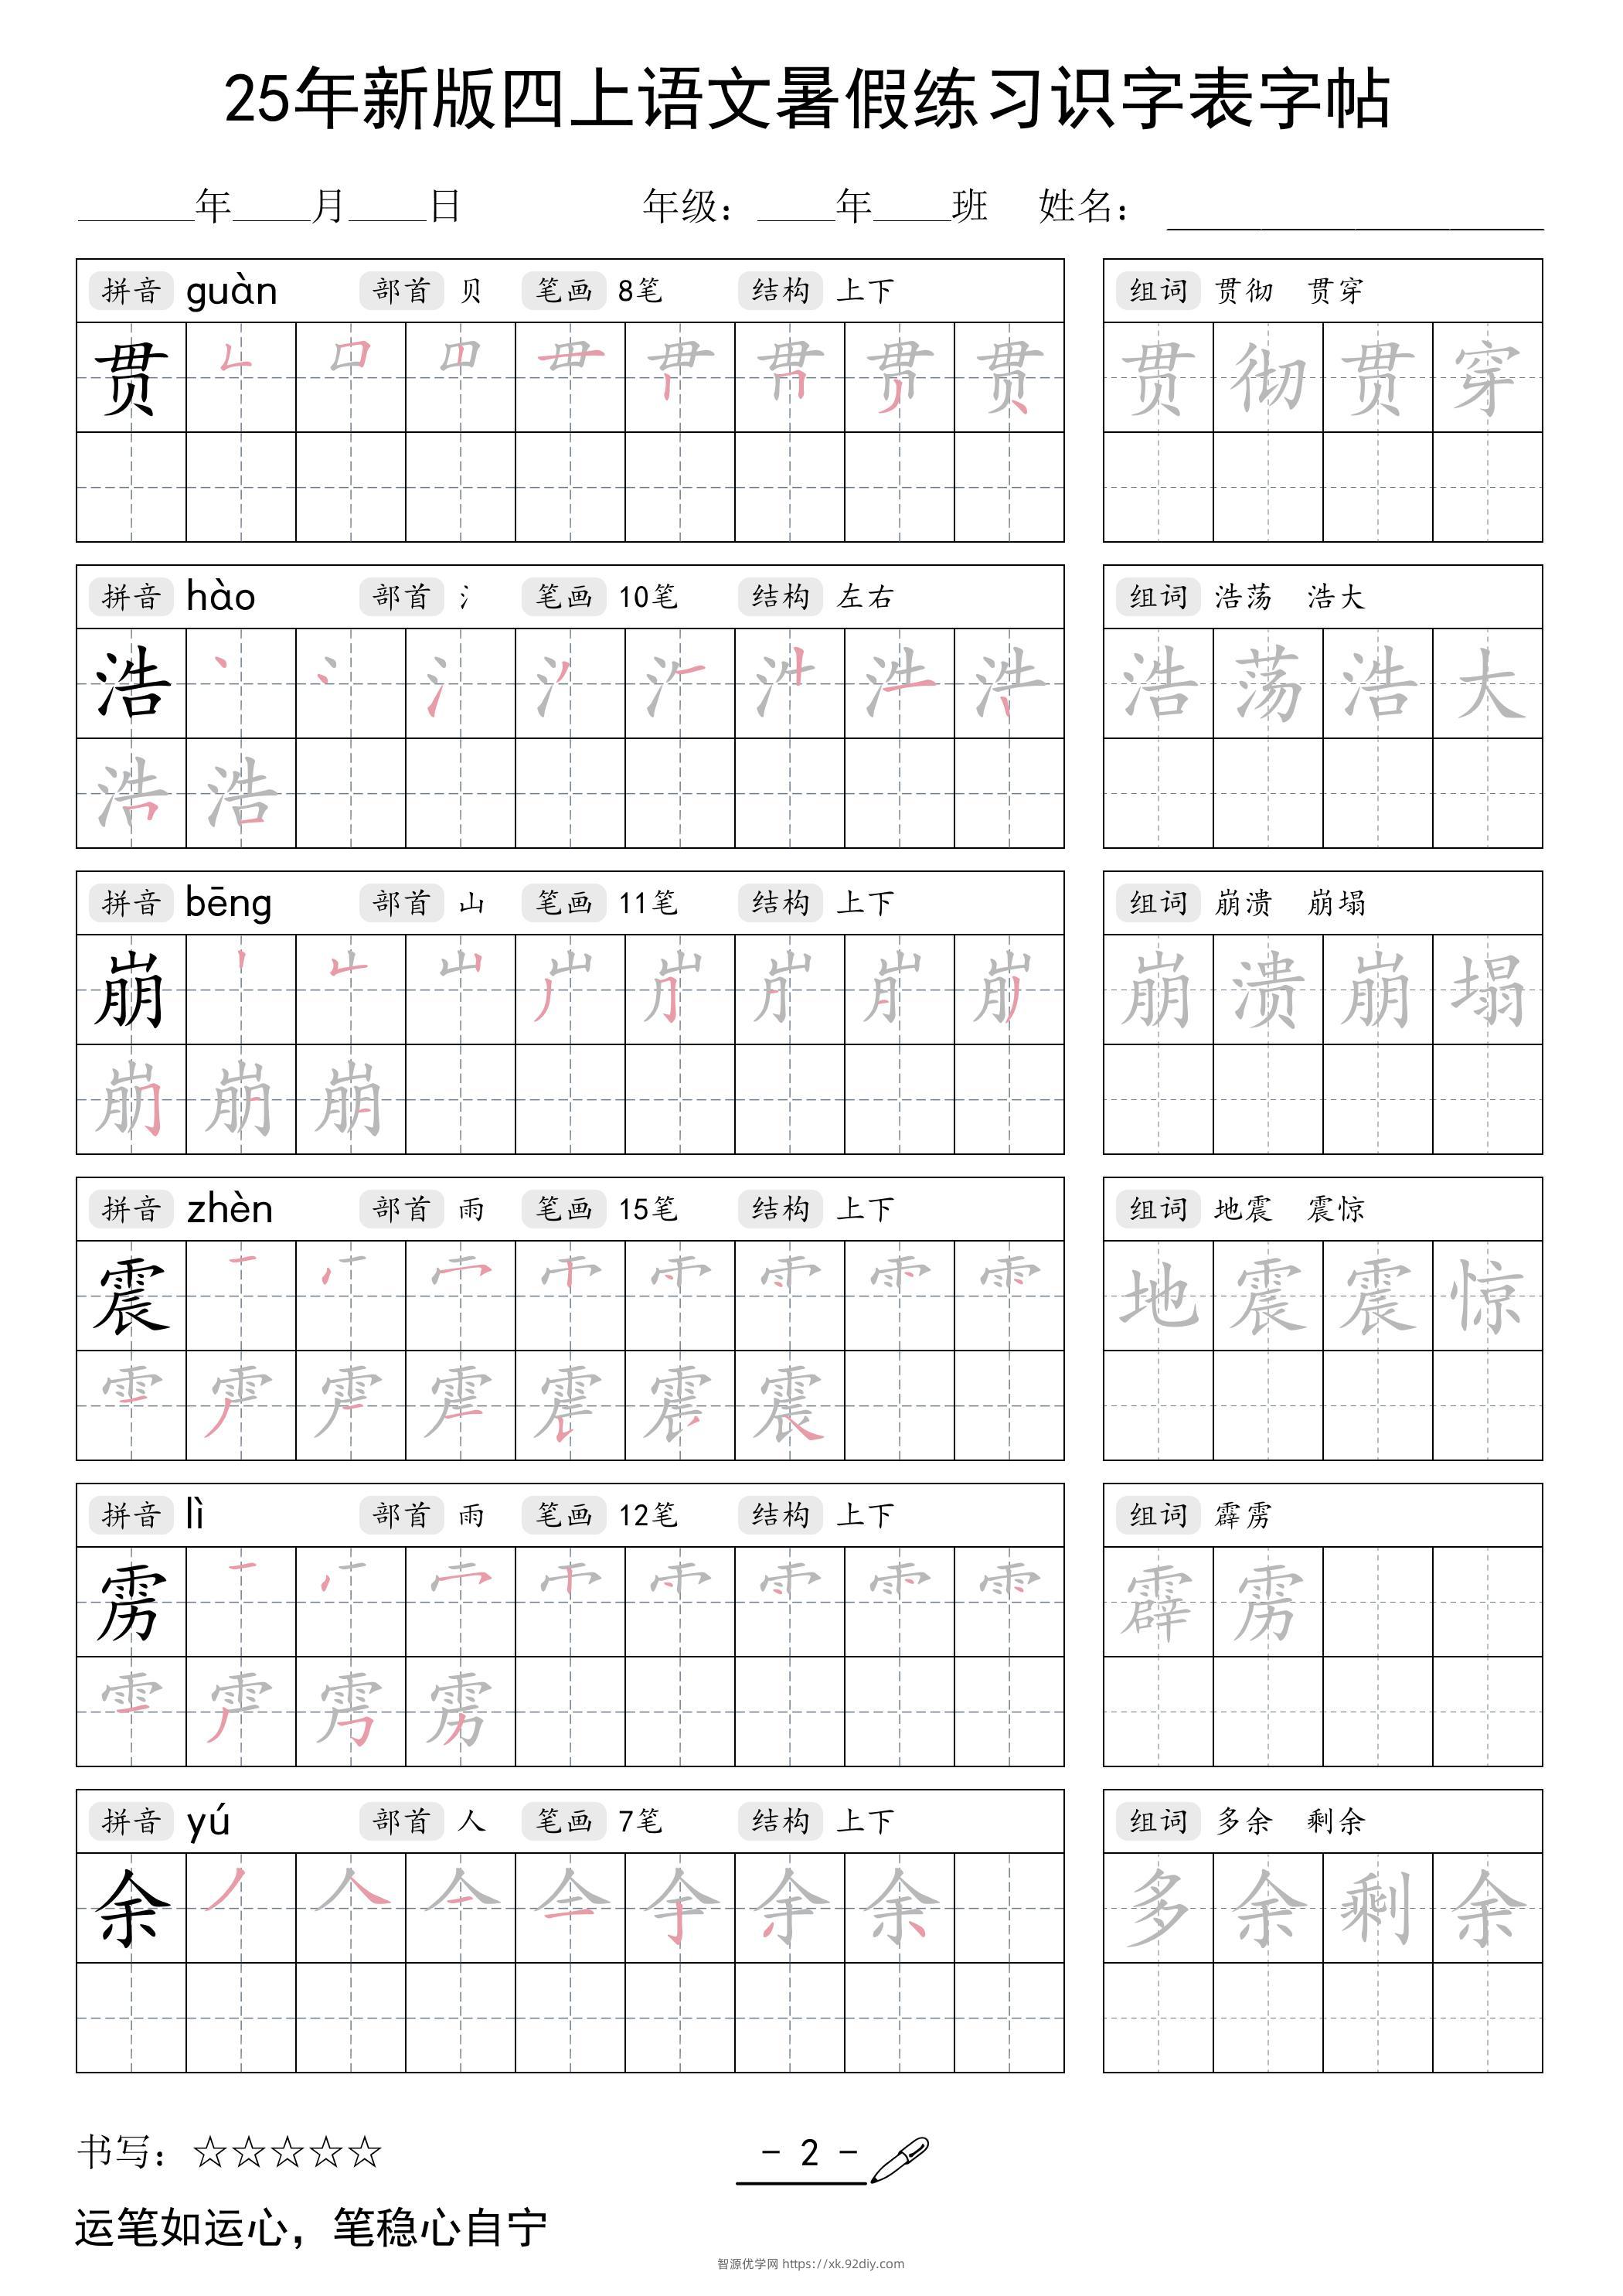 25年新版四上语文暑假练习识字表字帖
______年____月____日 年级：____年____班 姓名：
拼音 guàn 部首 贝 笔画 8笔 结构 上下
贯
组词 贯彻 贯穿
贯 彻 贯 穿
拼音 hào 部首 氵 笔画 10笔 结构 左右
浩
浩 浩
组词 浩荡 浩大
浩 荡 浩 大
拼音 bēng 部首 山 笔画 11笔 结构 上下
崩
崩 崩 崩
组词 崩溃 崩塌
崩 溃 崩 塌
拼音 zhèn 部首 雨 笔画 15笔 结构 上下
震
震
组词 地震 震惊
地 震 震 惊
拼音 lì 部首 雨 笔画 12笔 结构 上下
雳
雳
组词 霹雳
霹 雳
拼音 yú 部首 人 笔画 7笔 结构 上下
余 余
组词 多余 剩余
多 余 剩 余
书写：☆☆☆☆☆
- 2 -
运笔如运心，笔稳心自宁
智源优学网 https://xk.92diy.com